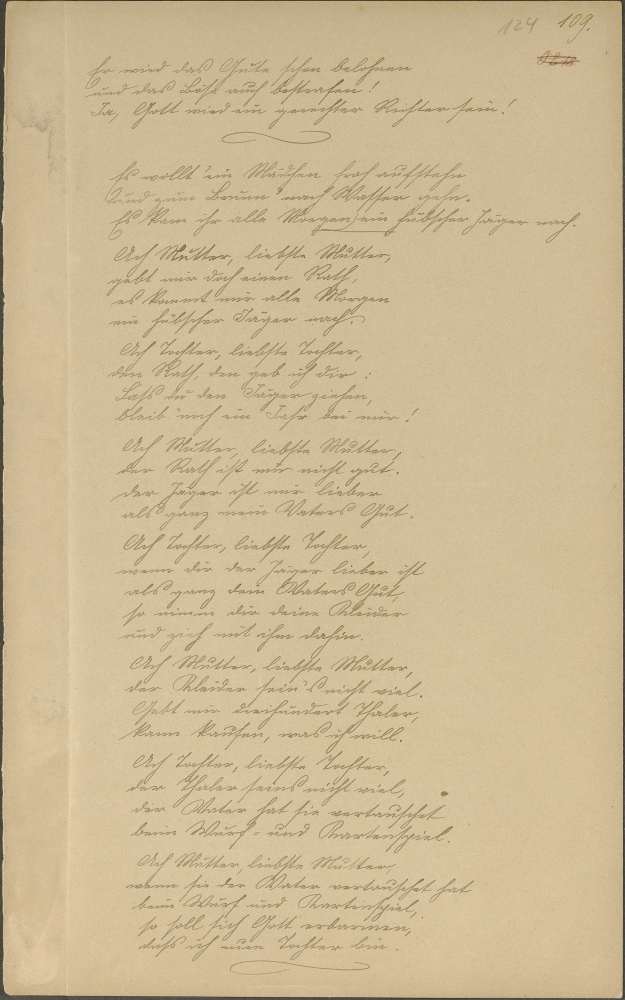 124 109.
Er wird das Gute schon belohnen
und das Böse auch bestrafen!
Ja, Gott wird ein gerechter Richter sein!
Es wollt' ein Mädchen froh aufstehn
und zum Brunn' nach Wasser gehn.
Es kam ihr alle Morgen ein hübscher Jäger nach.
Ach Mutter, liebste Mutter,
gebt mir doch einen Rath,
es kommt mir alle Morgen
ein hübscher Jäger nach.
Ach Tochter, liebste Tochter,
den Rath, den geb ich dir:
Lass du den Jäger ziehen,
bleib' noch ein Jahr bei mir!
Ach Mutter, liebste Mutter,
der Rath ist mir nicht gut.
der Jäger ist mir lieber
als ganz mein Vaters Gut.
Ach Tochter, liebste Tochter,
wenn dir der Jäger lieber ist
als ganz dein Vaters Gut,
so nimm dir deine Kleider
und zieh mit ihm dahin.
Ach Mutter, liebste Mutter,
der Kleider sein's nicht viel.
Gebt mir dreihundert Thaler,
kann kaufen, was ich will.
Ach Tochter, liebste Tochter,
der Thaler seins nicht viel,
der Vater hat sie vertauschet
beim Würf- und Kartenspiel.
Ach Mutter, liebste Mutter,
wenn sie der Vater vertauschet hat
beim Würf und Kartenspiel,
so soll sich Gott erbarmen,
dass ich eure Tochter bin.